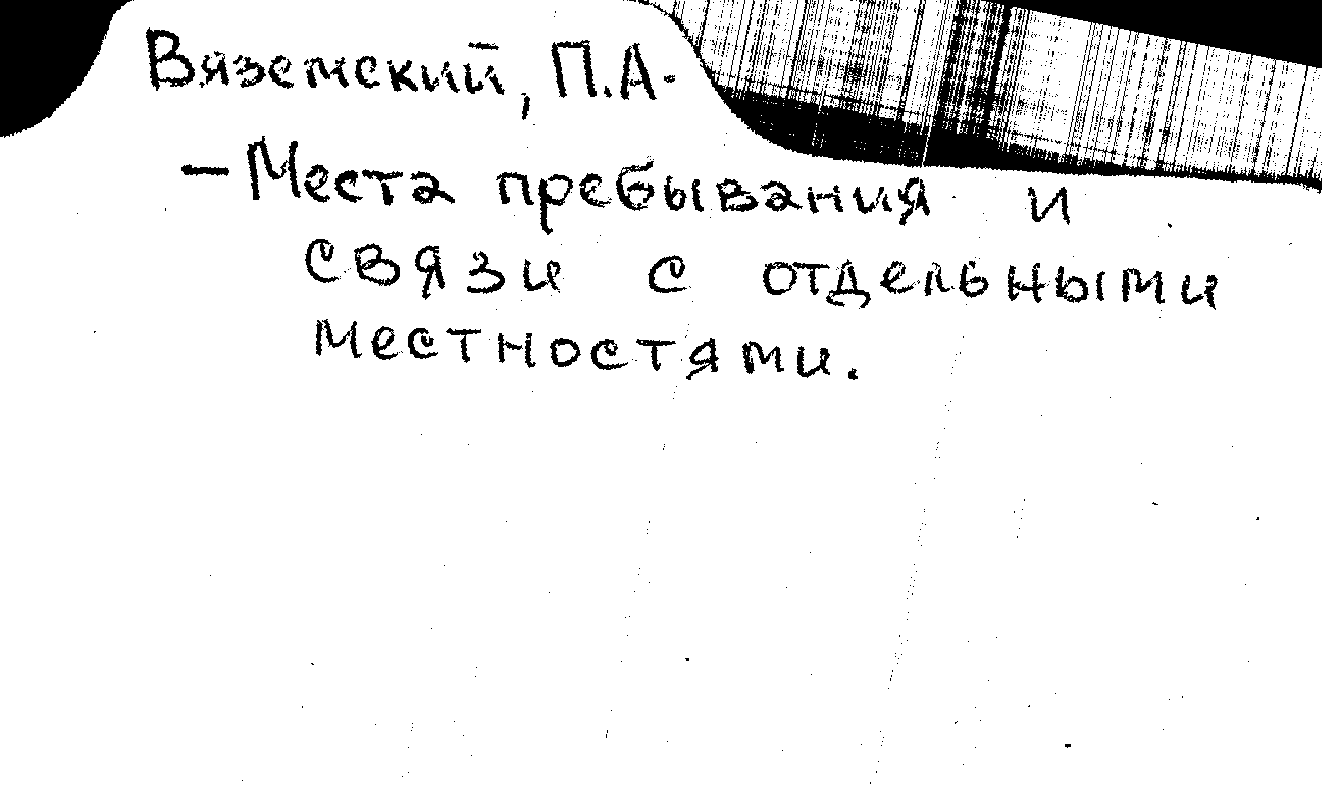 Вяземский, П.А.
— Места пребывания и
связи с отдельными
местностями.